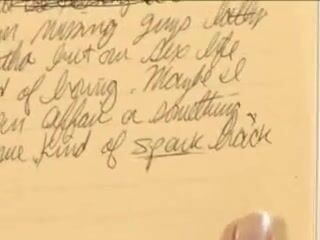 missing guys
but our sex life
of boring. Maybe I
an affair or something
kind of spark back